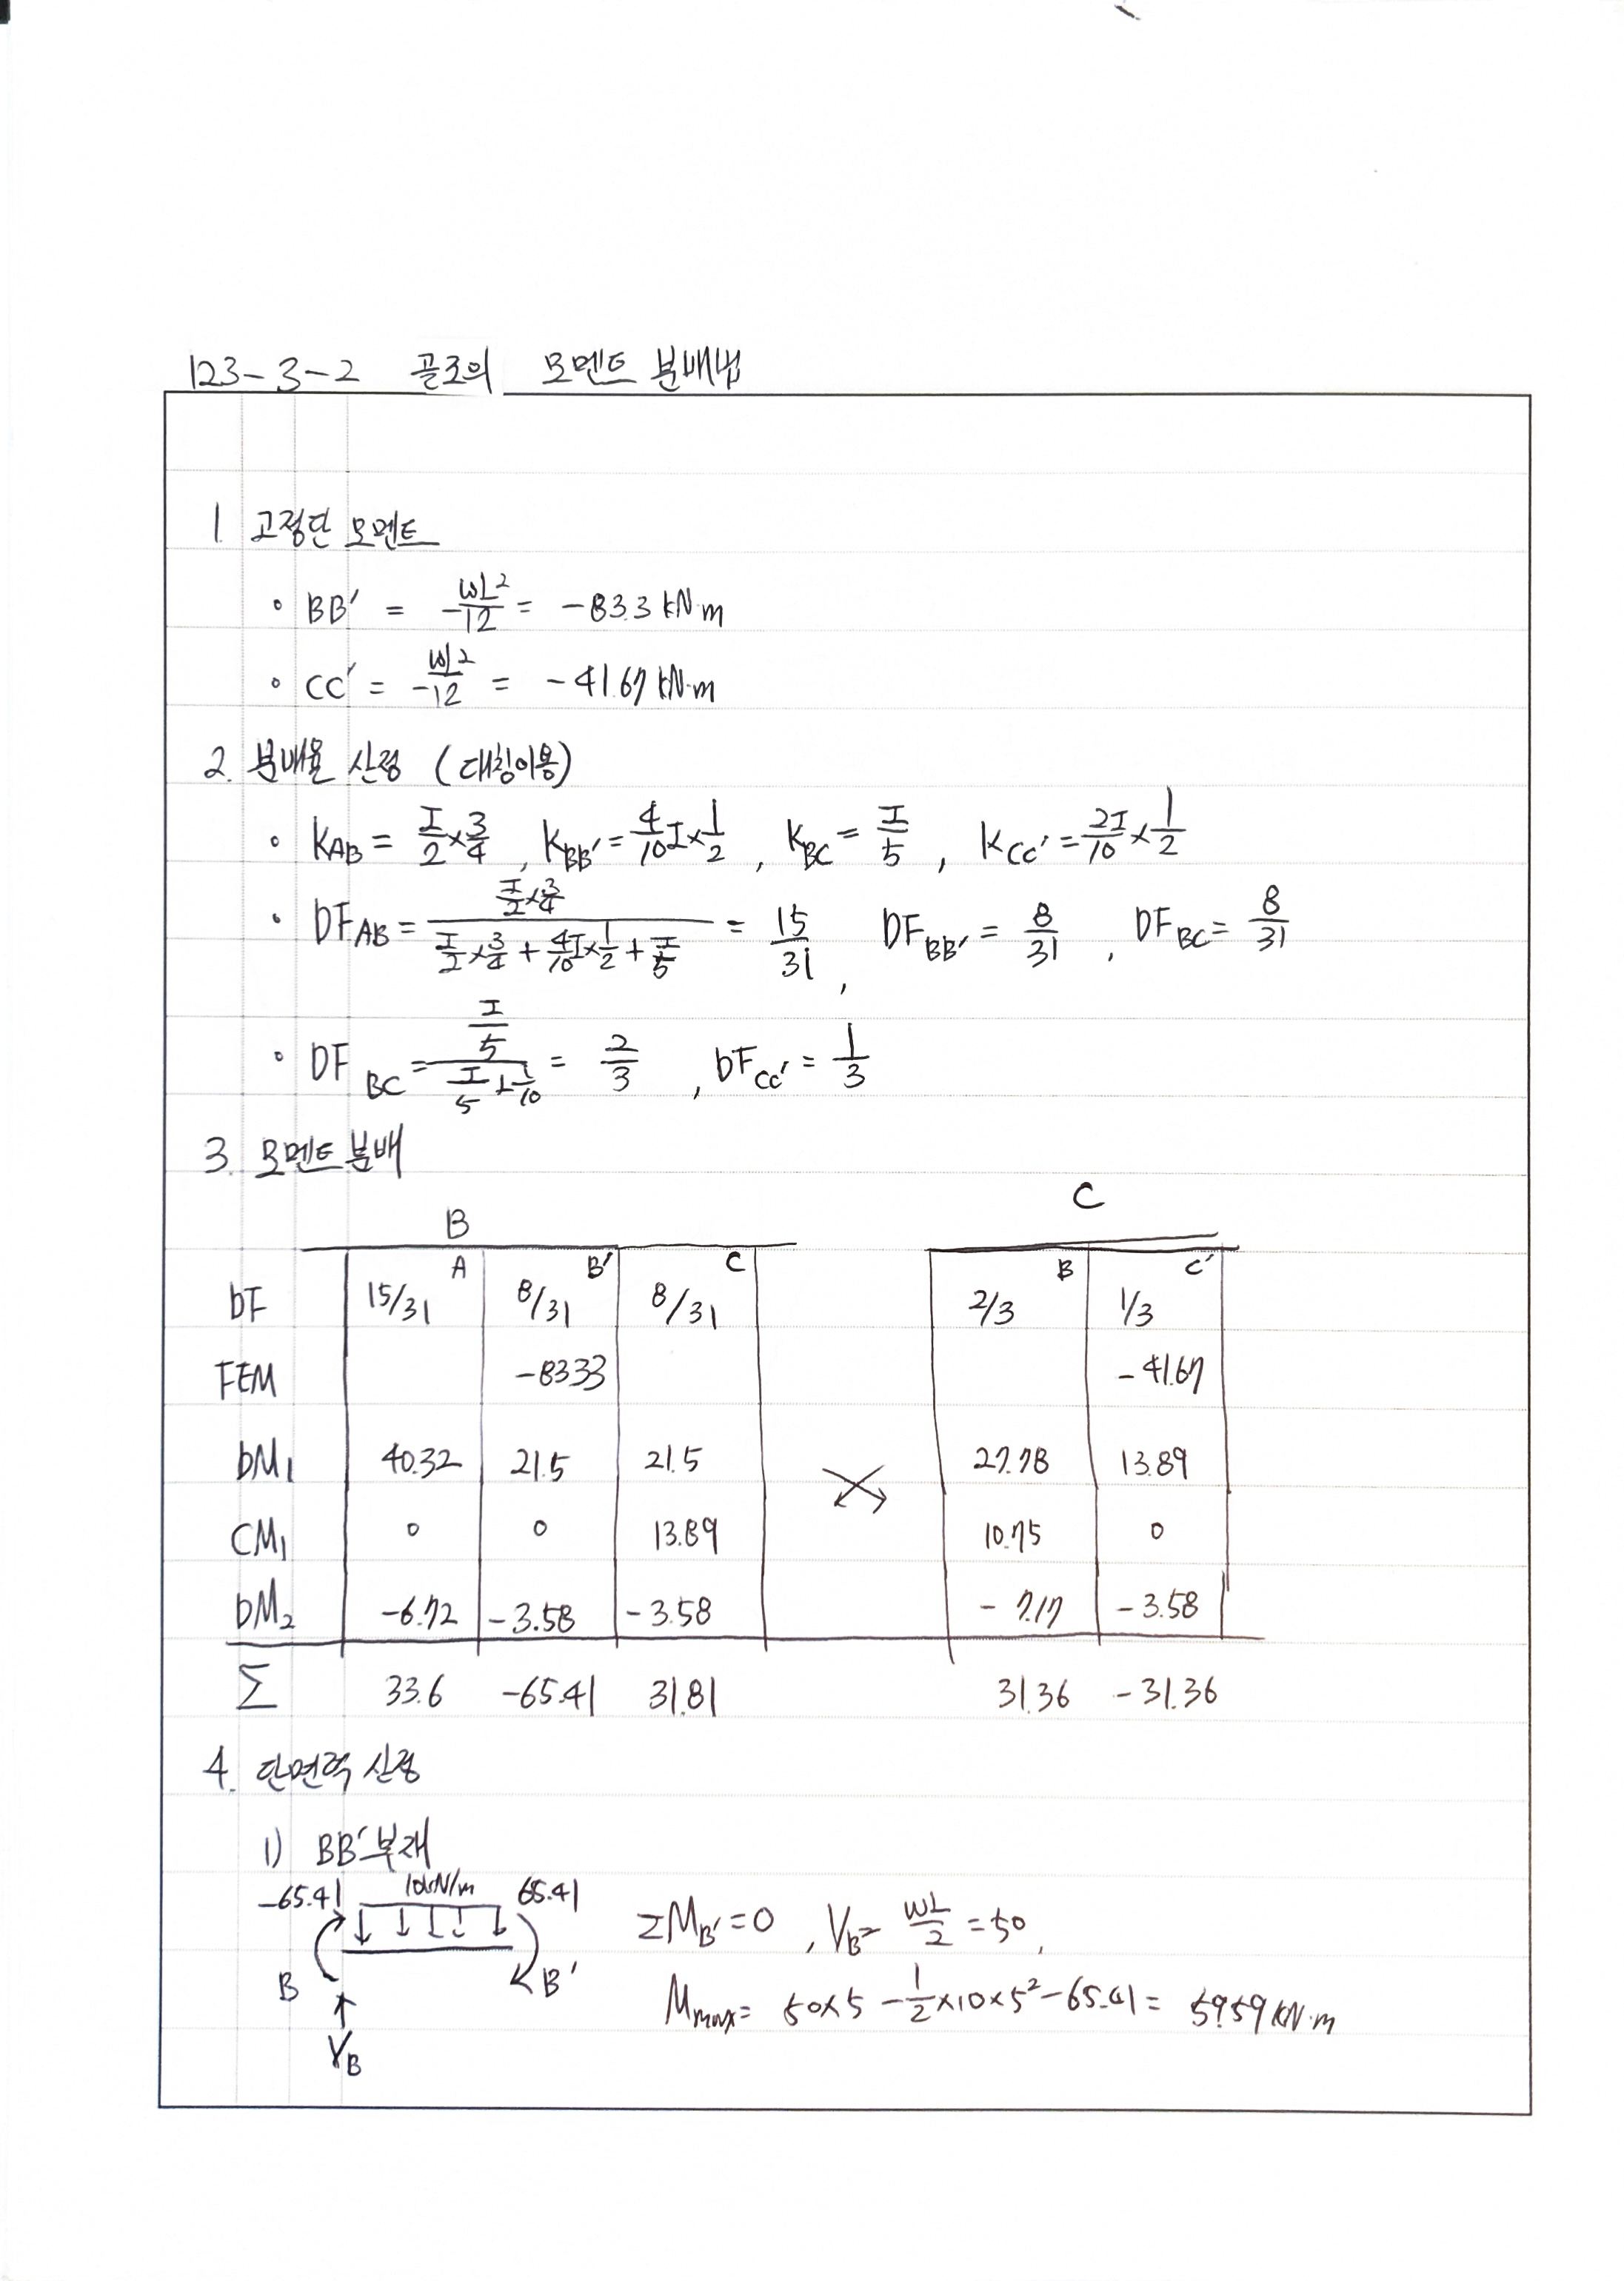 123-3-2 골조의 모멘트 분배법
1. 고정단 모멘트
• BB' = -wL²/12 = -83.3 kN·m
• CC' = wL²/-12 = -41.67 kN·m
2. 분배율 산정 (대칭이용)
• KAB = I/2 × 3/4 , KBB' = 4/10 I × 1/2 , KBC = I/5 , KCC' = 2I/10 × 1/2
• DFAB = (I/2 × 3/4) / (I/2 × 3/4 + 4I/10 × 1/2 + I/5) = 15/31 , DFBB' = 8/31 , DFBC = 8/31
• DFBC = (I/5) / (I/5 + I/10) = 2/3 , DFCC' = 1/3
3. 모멘트 분배
B C
A B' C B C'
DF 15/31 8/31 8/31 2/3 1/3
FEM -83.33 -41.67
DM1 40.32 21.5 21.5 27.78 13.89
CM1 0 0 13.89 10.75 0
DM2 -6.72 -3.58 -3.58 -7.17 -3.58
Σ 33.6 -65.41 31.81 31.36 -31.36
4. 단면력 산정
1) BB' 부재
-65.41 10kN/m 65.41
ΣMB' = 0 , VB = wL/2 = 50,
B B'
Mmax = 50×5 - 1/2×10×5² - 65.41 = 59.59 kN·m
VB